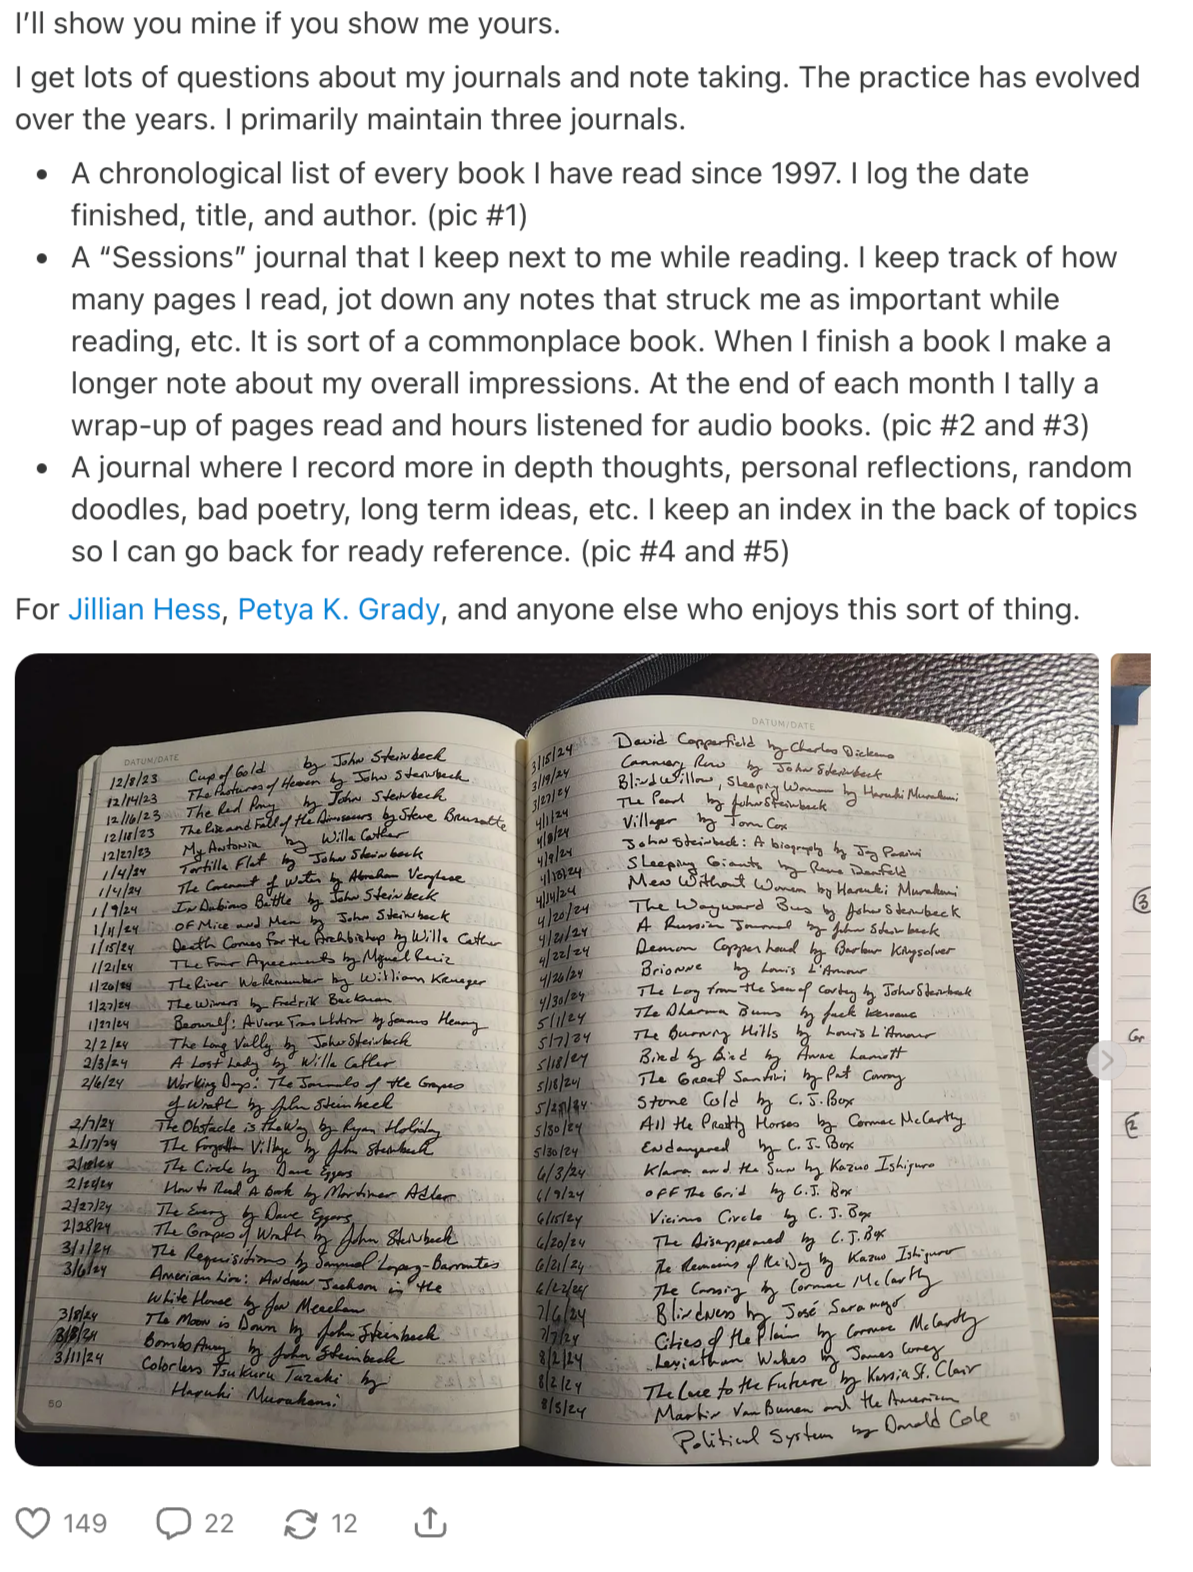 I'll show you mine if you show me yours.
I get lots of questions about my journals and note taking. The practice has evolved
over the years. I primarily maintain three journals.
• A chronological list of every book I have read since 1997. I log the date
finished, title, and author. (pic #1)
• A “Sessions” journal that I keep next to me while reading. I keep track of how
many pages I read, jot down any notes that struck me as important while
reading, etc. It is sort of a commonplace book. When I finish a book I make a
longer note about my overall impressions. At the end of each month I tally a
wrap-up of pages read and hours listened for audio books. (pic #2 and #3)
• A journal where I record more in depth thoughts, personal reflections, random
doodles, bad poetry, long term ideas, etc. I keep an index in the back of topics
so I can go back for ready reference. (pic #4 and #5)
For Jillian Hess, Petya K. Grady, and anyone else who enjoys this sort of thing.
DATUM/DATE
12/8/23 Cup of Gold by John Steinbeck
12/14/23 The Pastures of Heaven by John Steinbeck
12/16/23 The Red Pony by John Steinbeck
12/18/23 The Rise and Fall of the Dinosaurs by Steve Brusatte
12/27/23 My Antonia by Willa Cather
1/4/24 Tortilla Flat by John Steinbeck
1/4/24 The Covenant of Water by Abraham Verghese
1/9/24 In Dubious Battle by John Steinbeck
1/11/24 Of Mice and Men by John Steinbeck
1/15/24 Death Comes for the Archbishop by Willa Cather
1/21/24 The Four Agreements by Miguel Ruiz
1/26/24 The River We Remember by William Krueger
1/27/24 The Winners by Fredrik Backman
1/27/24 Beowulf: A Verse Translation by Seamus Heaney
2/2/24 The Long Vally by John Steinbeck
2/3/24 A Lost Lady by Willa Cather
2/6/24 Working Days: The Journals of the Grapes
of Wrath by John Steinbeck
2/7/24 The Obstacle is the Way by Ryan Holiday
2/17/24 The Forgotten Village by John Steinbeck
The Circle by Dave Eggers
How to Read A Book by Mortimer Adler
2/27/24 The Every by Dave Eggers
2/28/24 The Grapes of Wrath by John Steinbeck
3/1/24 The Requisitions by Samuel Lopez-Barrantes
3/6/24 American Lion: Andrew Jackson in the
White House by Jon Meacham
3/8/24 The Moon is Down by John Steinbeck
3/8/24 Bombs Away by John Steinbeck
3/11/24 Colorless Tsukuru Tazaki by
Haruki Murakami
50
DATUM/DATE
3/15/24 David Copperfield by Charles Dickens
3/19/24 Cannery Row by John Steinbeck
3/27/24 Blind Willow, Sleeping Woman by Haruki Murakami
4/1/24 The Pearl by John Steinbeck
4/8/24 Villager by Tom Cox
4/9/24 John Steinbeck: A biography by Jay Parini
4/13/24 Sleeping Giants by Rene Denfeld
4/14/24 Men Without Women by Haruki Murakami
4/20/24 The Wayward Bus by John Steinbeck
4/21/24 A Russian Journal by John Steinbeck
4/22/24 Demon Copperhead by Barbara Kingsolver
4/26/24 Brionne by Louis L'Amour
4/30/24 The Log from the Sea of Cortez by John Steinbeck
5/1/24 The Dharma Bums by Jack Kerouac
5/7/24 The Burning Hills by Louis L'Amour
5/18/24 Bird by Bird by Anne Lamott
5/18/24 The Great Santini by Pat Conroy
Stone Cold by C.J. Box
5/30/24 All the Pretty Horses by Cormac McCarthy
5/30/24 Endangered by C.J. Box
6/3/24 Klara and the Sun by Kazuo Ishiguro
6/9/24 Off The Grid by C.J. Box
6/15/24 Vicious Circle by C.J. Box
6/20/24 The Disappeared by C.J. Box
6/21/24 The Remains of the Day by Kazuo Ishiguro
6/22/24 The Crossing by Cormac McCarthy
7/6/24 Blindness by José Saramago
7/7/24 Cities of the Plain by Cormac McCarthy
8/2/24 Leviathan Wakes by James Corey
8/2/24 The Love to the Future by Kassia St. Clair
8/5/24 Martin Van Buren and the American
Political System by Donald Cole
51
3
Gr
2
149 22 12